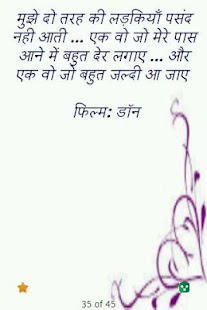 मुझे दो तरह की लड़कियाँ पसंद
नही आती ... एक वो जो मेरे पास
आने में बहुत देर लगाए ... और
एक वो जो बहुत जल्दी आ जाए
फिल्म: डॉन
35 of 45